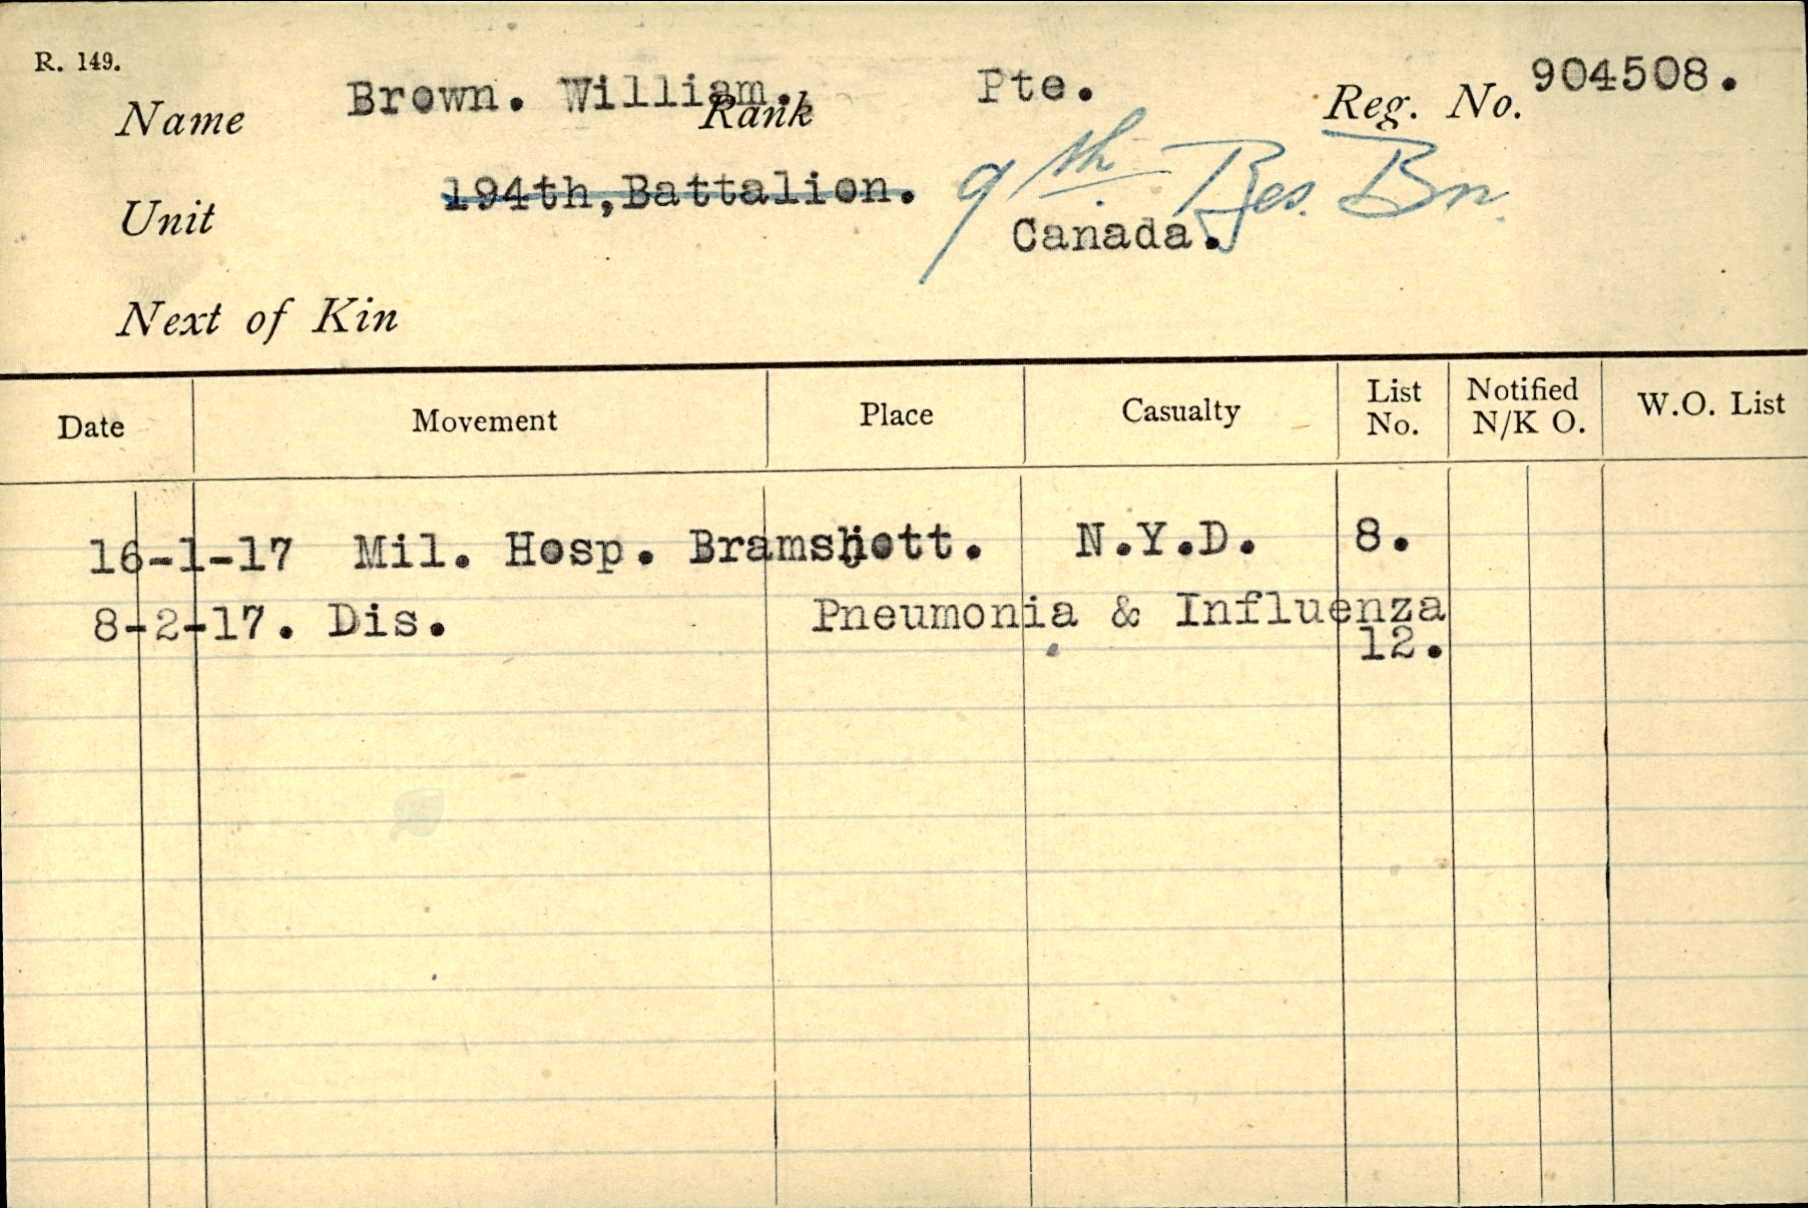 R. 149.
Name Brown. William. Rank Pte. Reg. No. 904508.
Unit 194th,Battalion. 9th Res. Bn.
Canada.
Next of Kin
Date Movement Place Casualty List No. Notified N/K O. W.O. List
16-1-17 Mil. Hosp. Bramshott. N.Y.D. 8.
8-2-17. Dis. Pneumonia & Influenza
12.